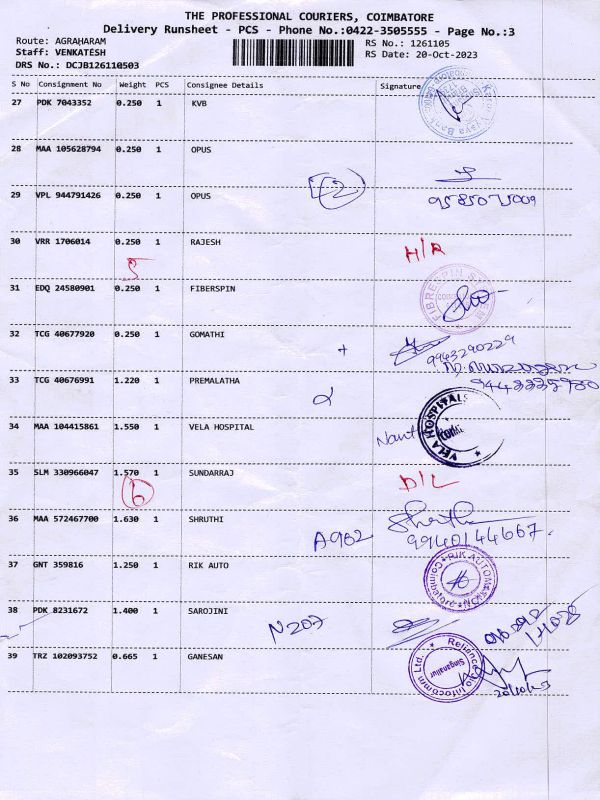 THE PROFESSIONAL COURIERS, COIMBATORE
Delivery Runsheet - PCS - Phone No.:0422-3505555 - Page No.:3
Route: AGRAHARAM RS No.: 1261105
Staff: VENKATESH RS Date: 20-Oct-2023
DRS No.: DCJB126110503
S No Consignment No Weight PCS Consignee Details Signature
27 PDK 7043352 0.250 1 KVB
28 MAA 105628794 0.250 1 OPUS
29 VPL 944791426 0.250 1 OPUS
9585075009
30 VRR 1706014 0.250 1 RAJESH
H/R
5
31 EDQ 24580901 0.250 1 FIBERSPIN
32 TCG 40677920 0.250 1 GOMATHI
9943290229
33 TCG 40676991 1.220 1 PREMALATHA
34 MAA 104415861 1.550 1 VELA HOSPITAL
VELA HOSPITALS
35 SLM 330966047 1.570 1 SUNDARRAJ
D/L
6
36 MAA 572467700 1.630 1 SHRUTHI
A902
9940144667.
37 GNT 359816 1.250 1 RIK AUTO
RIK AUTOMATION
Coimbatore
38 PDK 8231672 1.400 1 SAROJINI
N207
39 TRZ 102093752 0.665 1 GANESAN
Reliance Jio Infocomm Ltd.
Singanallur
20/10/23